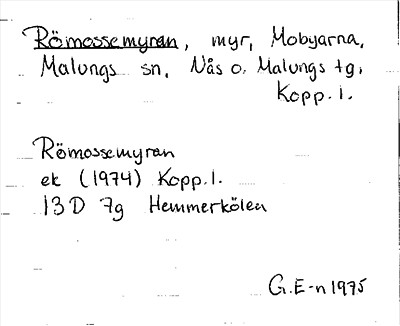 Römossemyran, myr, Mobyarna,
Malungs sn, Nås o. Malungs tg,
Kopp. l.
Römossemyran
ek (1974) Kopp. l.
13D 7g Hemmerkölen
G.E-n 1975